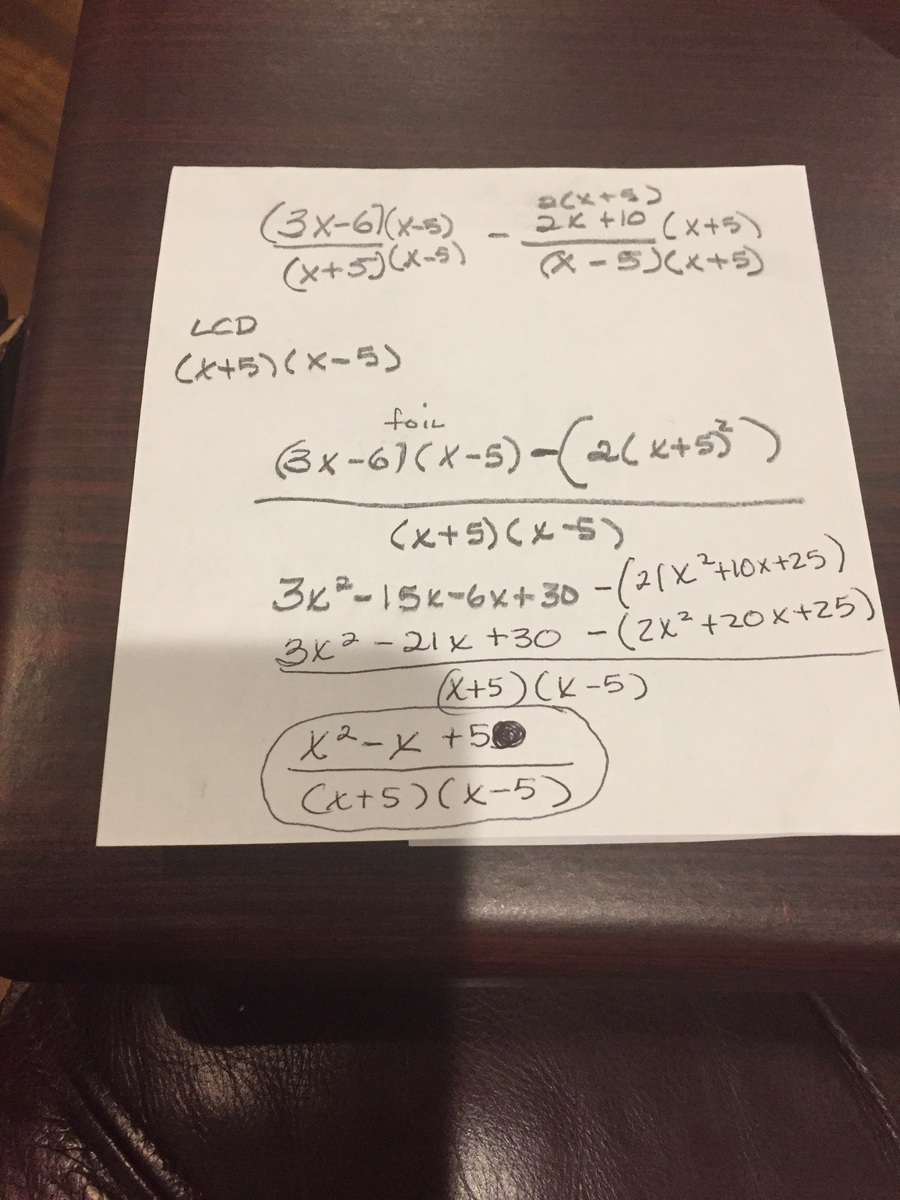 2(x+5)
(3x-6)(x-5) - 2x+10 (x+5)
(x+5)(x-5) (x-5)(x+5)
LCD
(x+5)(x-5)
foil
(3x-6)(x-5)-(2(x+5)²)
(x+5)(x-5)
3x²-15x-6x+30 -(2(x²+10x+25)
3x²-21x+30 -(2x²+20x+25)
(x+5)(x-5)
x²-x+5
(x+5)(x-5)